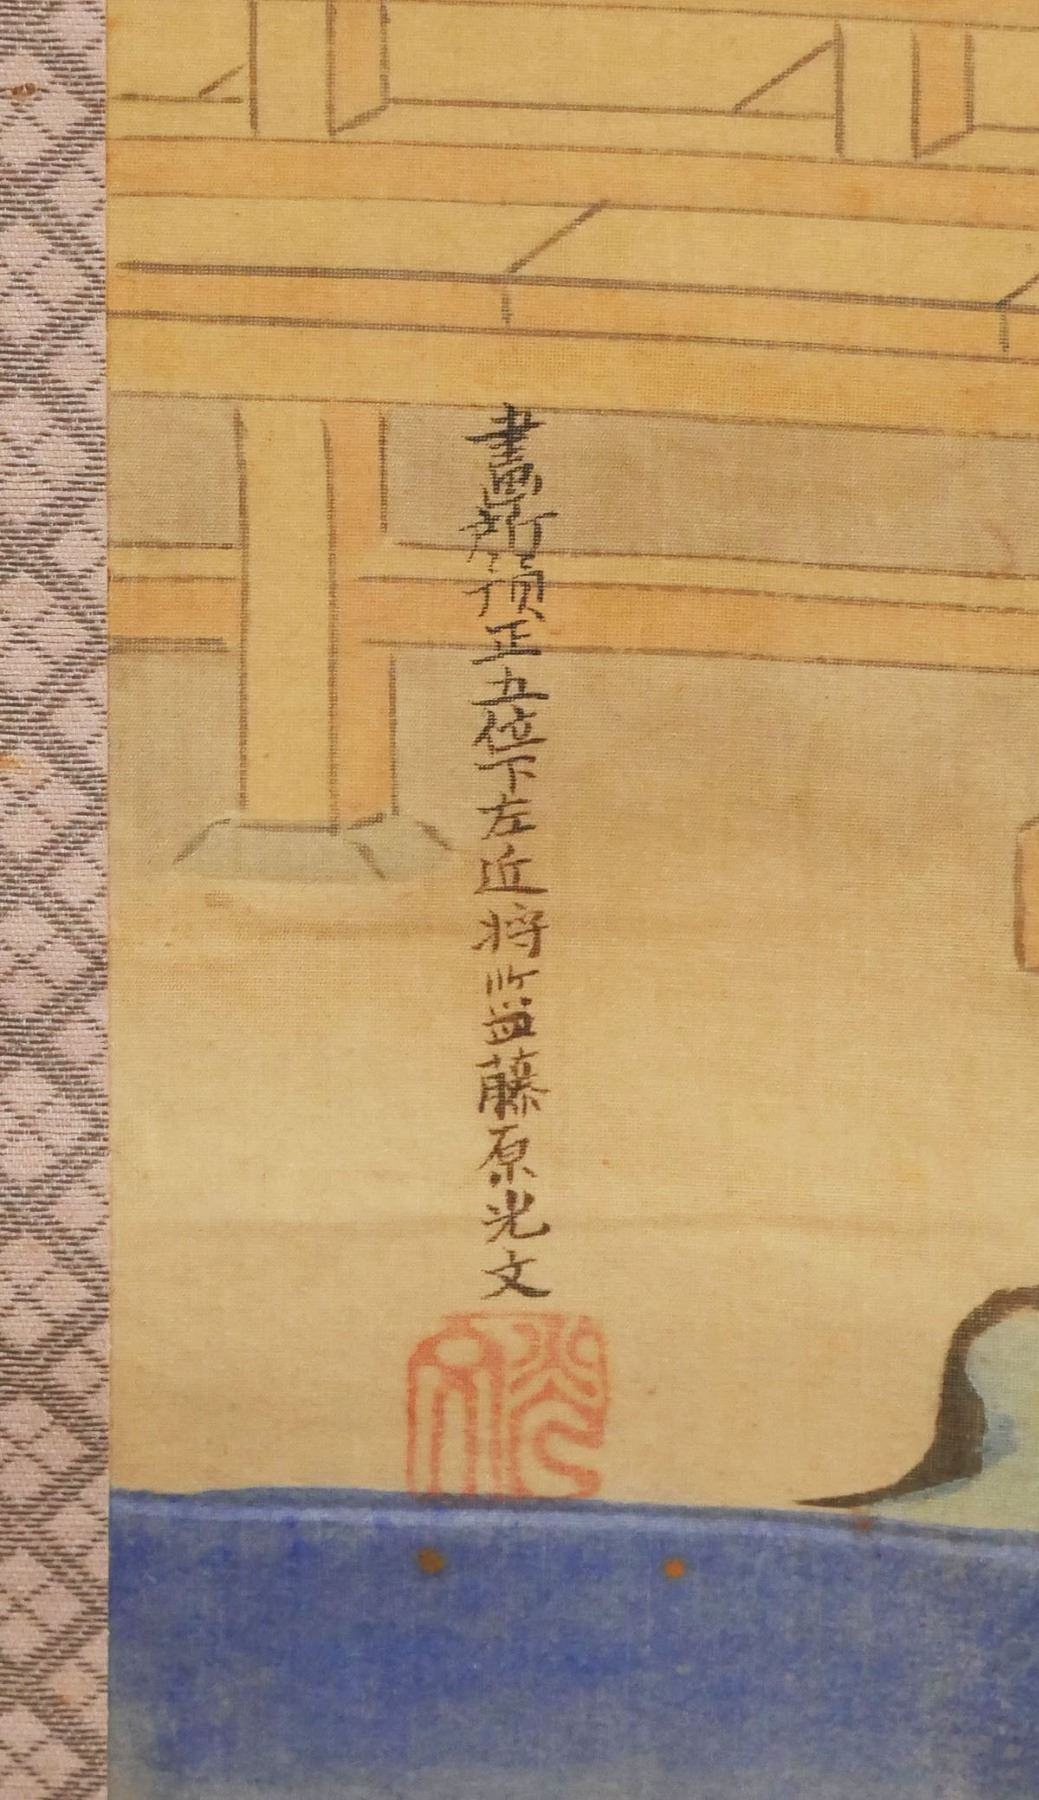 畫所預正五位下左近将監藤原光文
光文